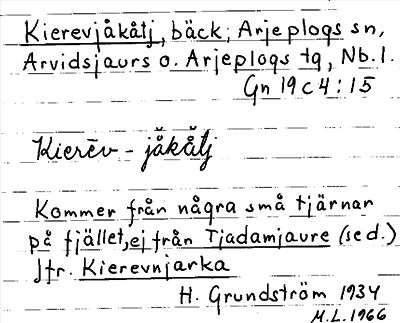 Kierevjåkåtj, bäck, Arjeplogs sn,
Arvidsjaurs o. Arjeplogs tg, Nb.l.
Gn 19 c 4:15
Kierēv - jå̆kå̆tj
Kommer från några små tjärnar
på fjället, ej från Tjadamjaure (se d.)
Jfr. Kierevnjarka
H. Grundström 1934
M.L. 1966